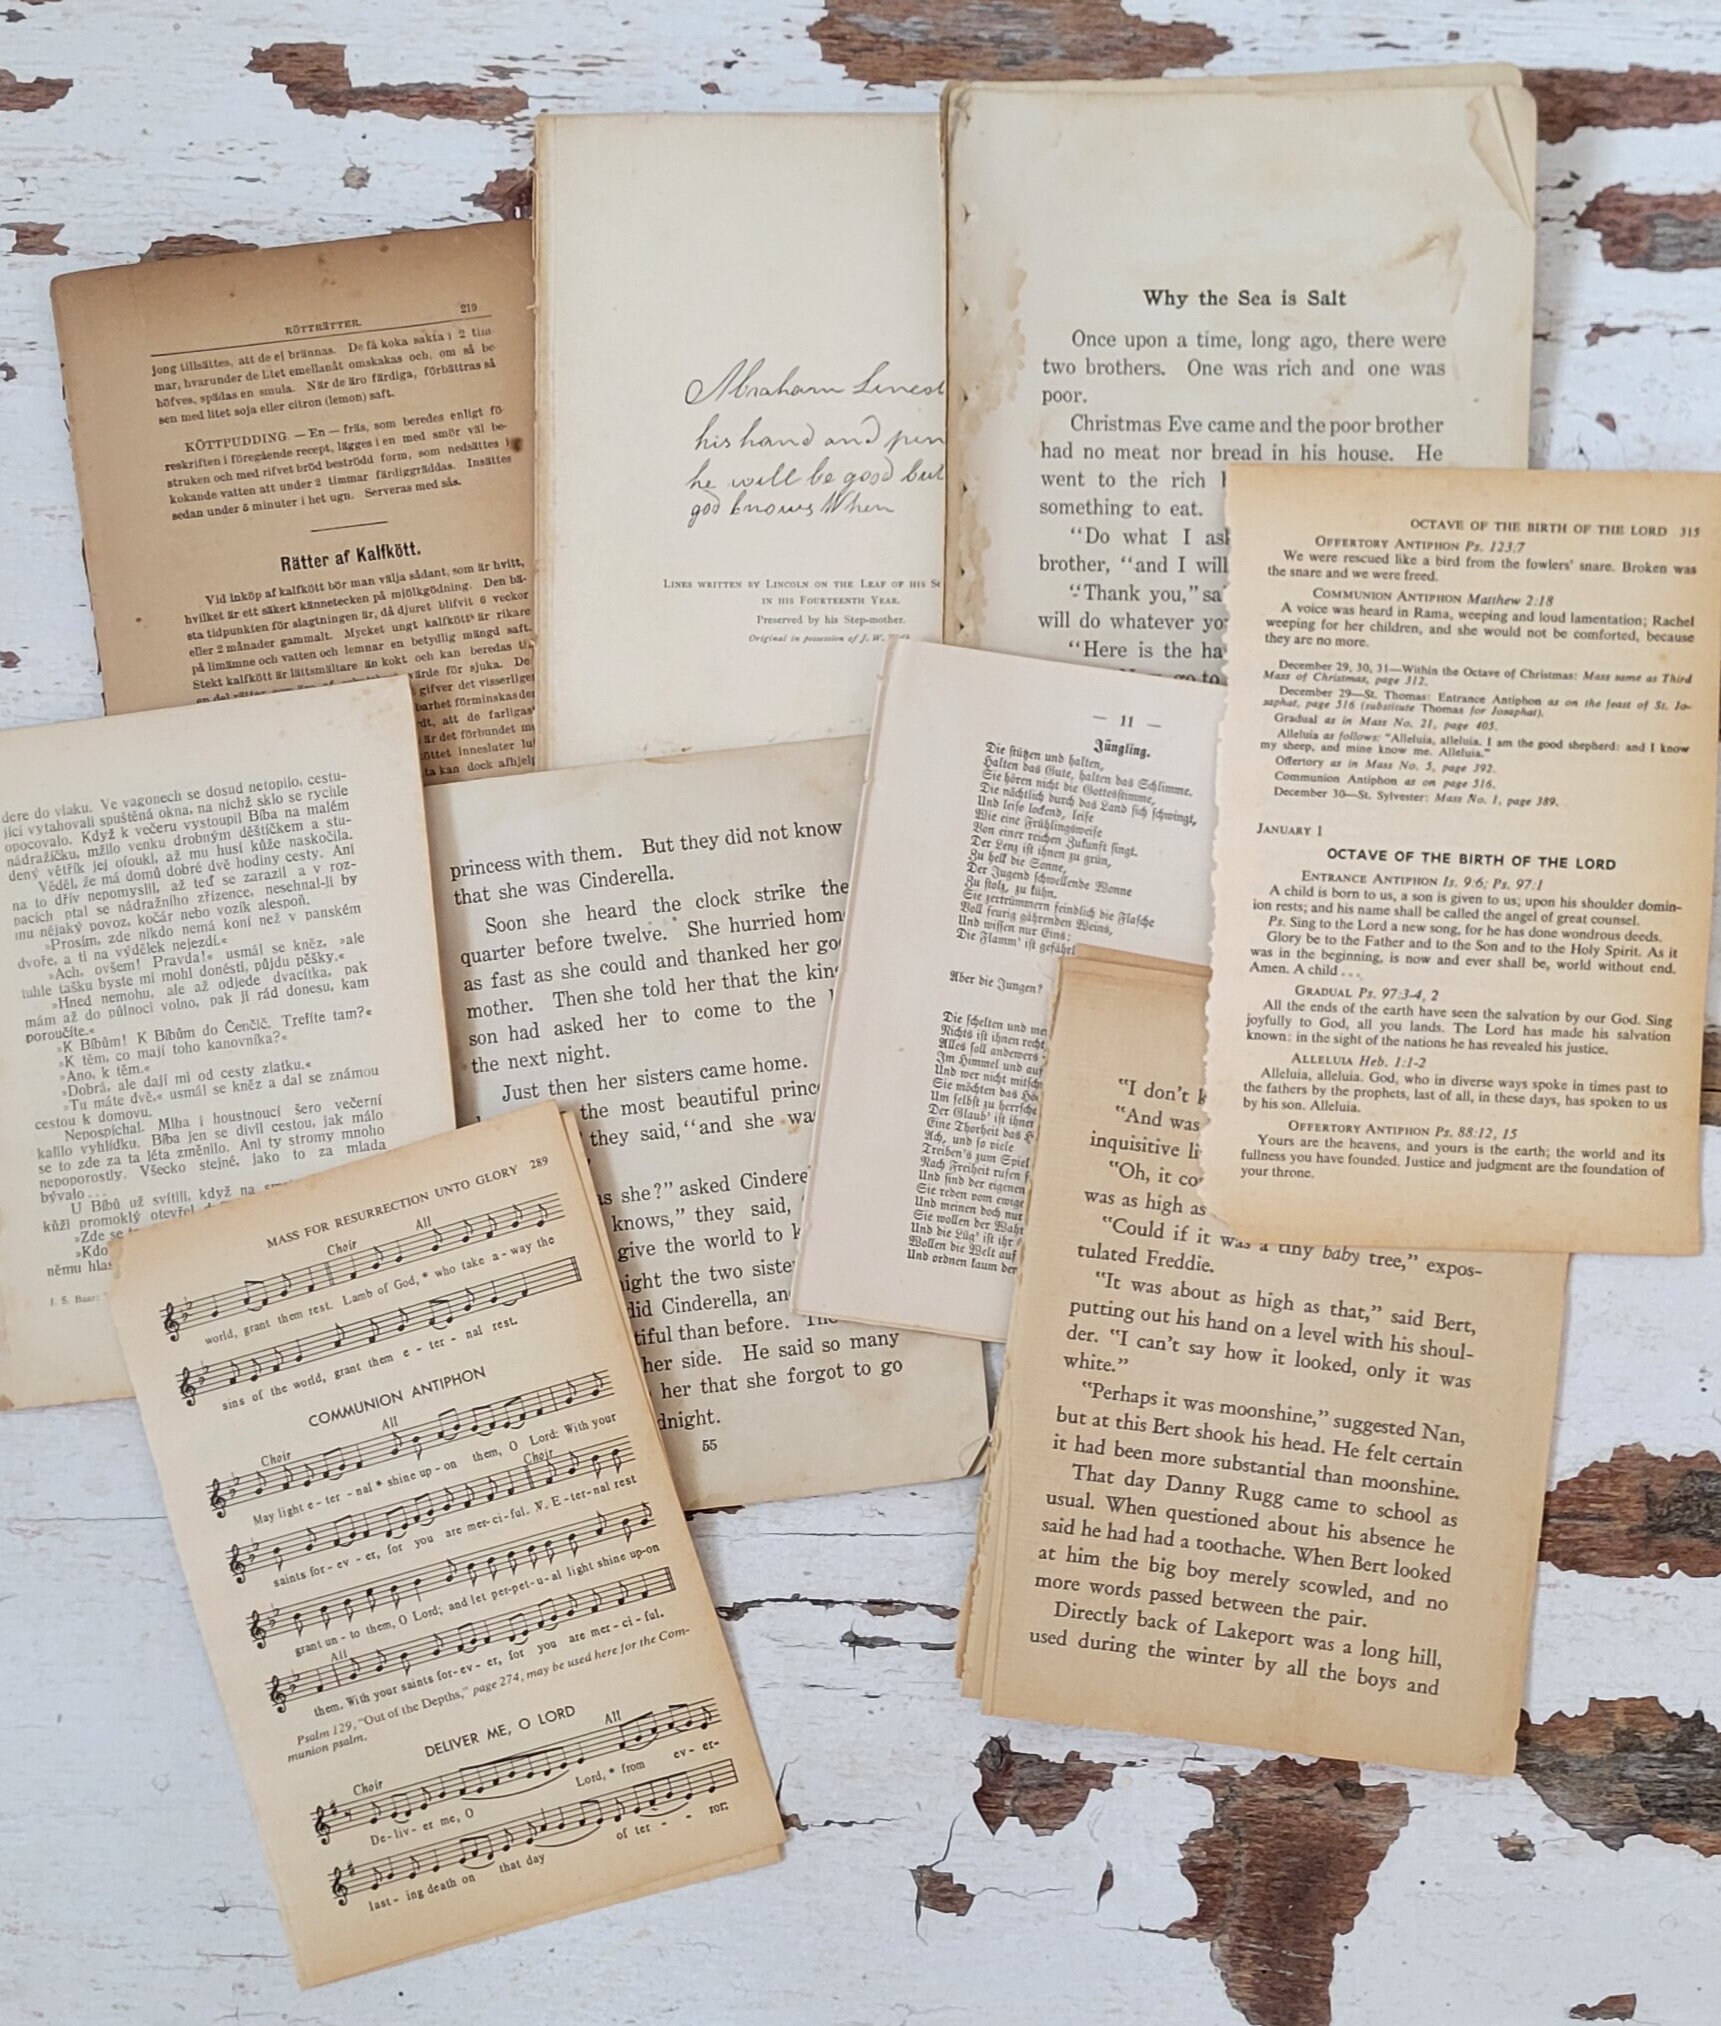 KÖTTRÄTTER. 219
jong tillsättes, att de ej brännas. De få koka sakta i 2 tim-
mar, hvarunder de litet emellanåt omskakas och, om så be-
höfves, spädas en smula. När de äro färdiga, förbättras så
sen med litet soja eller citron (lemon) saft.
KÖTTPUDDING. — En — fräs, som beredes enligt fö-
reskriften i föregående recept, lägges i en med smör väl be-
struken och med rifvet bröd beströdd form, som nedsättes i
kokande vatten att under 2 timmar färdiggräddas. Insättes
sedan under 5 minuter i het ugn. Serveras med sås.
Rätter af Kalfkött.
Vid inköp af kalfkött bör man välja sådant, som är hvitt,
hvilket är ett säkert kännetecken på mjölkgödning. Den bä-
sta tidpunkten för slagtningen är, då djuret blifvit 6 veckor
eller 2 månader gammalt. Mycket ungt kalfkött är rikare
på limämne och vatten och lemnar en betydlig mängd saft.
Stekt kalfkött är lättsmältare än kokt och kan beredas
värde för sjuka. De
gifver det visserliga
förminskas
att de farligas
är det förbundet
innesluter
kan dock afhjelp
Abraham Lincol
his hand and pen
he will be good but
god knows When
LINES WRITTEN BY LINCOLN ON THE LEAF OF HIS
IN HIS FOURTEENTH YEAR.
Preserved by his Step-mother.
Original in possession of J. W.
Why the Sea is Salt
Once upon a time, long ago, there were
two brothers. One was rich and one was
poor.
Christmas Eve came and the poor brother
had no meat nor bread in his house. He
went to the rich
something to eat.
"Do what I ask
brother, "and I will
"Thank you," sa
will do whatever yo
"Here is the ha
go to
OCTAVE OF THE BIRTH OF THE LORD 315
OFFERTORY ANTIPHON Ps. 123:7
We were rescued like a bird from the fowlers' snare. Broken was
the snare and we were freed.
COMMUNION ANTIPHON Matthew 2:18
A voice was heard in Rama, weeping and loud lamentation; Rachel
weeping for her children, and she would not be comforted, because
they are no more.
December 29, 30, 31—Within the Octave of Christmas: Mass same as Third
Mass of Christmas, page 312.
December 29—St. Thomas: Entrance Antiphon as on the feast of St. Jo-
saphat, page 516 (substitute Thomas for Josaphat).
Gradual as in Mass No. 21, page 405.
Alleluia as follows: "Alleluia, alleluia. I am the good shepherd: and I know
my sheep, and mine know me. Alleluia."
Offertory as in Mass No. 5, page 392.
Communion Antiphon as on page 516.
December 30—St. Sylvester: Mass No. 1, page 389.
JANUARY 1
OCTAVE OF THE BIRTH OF THE LORD
ENTRANCE ANTIPHON Is. 9:6; Ps. 97:1
A child is born to us, a son is given to us; upon his shoulder domin-
ion rests; and his name shall be called the angel of great counsel.
Ps. Sing to the Lord a new song, for he has done wondrous deeds.
Glory be to the Father and to the Son and to the Holy Spirit. As it
was in the beginning, is now and ever shall be, world without end.
Amen. A child . . .
GRADUAL Ps. 97:3-4, 2
All the ends of the earth have seen the salvation by our God. Sing
joyfully to God, all you lands. The Lord has made his salvation
known: in the sight of the nations he has revealed his justice.
ALLELUIA Heb. 1:1-2
Alleluia, alleluia. God, who in diverse ways spoke in times past to
the fathers by the prophets, last of all, in these days, has spoken to us
by his son. Alleluia.
OFFERTORY ANTIPHON Ps. 88:12, 15
Yours are the heavens, and yours is the earth; the world and its
fullness you have founded. Justice and judgment are the foundation of
your throne.
dere do vlaku. Ve vagonech se dosud netopilo, cestu-
jící vytahovali spuštěná okna, na nichž sklo se rychle
opocovalo. Když k večeru vystoupil Bíba na malém
nádražíčku, mžilo venku drobným deštíčkem a stu-
dený větřík jej ofoukl, až mu husí kůže naskočila.
Věděl, že má domů dobré dvě hodiny cesty. Ani
na to dřív nepomyslil, až teď se zarazil a v roz-
pacích ptal se nádražního zřízence, nesehnal-li by
mu nějaký povoz, kočár nebo vozík alespoň.
»Prosím, zde nikdo nemá koní než v panském
dvoře, a ti na výdělek nejezdí.«
»Ach, ovšem! Pravda!« usmál se kněz, »ale
tuhle tašku byste mi mohl donésti, půjdu pěšky.«
»Hned nemohu, ale až odjede dvacítka, pak
mám až do půlnoci volno, pak jí rád donesu, kam
poroučíte.«
»K Bíbům! K Bíbům do Čenčic. Trefíte tam?«
»K těm, co mají toho kanovníka?«
»Ano, k těm.«
»Dobrá, ale dají mi od cesty zlatku.«
»Tu máte dvě,« usmál se kněz a dal se známou
cestou k domovu.
Nepospíchal. Mlha i houstnoucí šero večerní
kalilo vyhlídku. Bíba jen se divil cestou, jak málo
se to zde za ta léta změnilo. Ani ty stromy mnoho
nepoporostly. Všecko stejné, jako to za mlada
bývalo . . .
U Bíbů už svítili, když na
kůži promoklý otevřel
»Zde se
»Kdo
němu hlas
J. Š. Baar:
princess with them. But they did not know
that she was Cinderella.
Soon she heard the clock strike the
quarter before twelve. She hurried hom
as fast as she could and thanked her go
mother. Then she told her that the kin
son had asked her to come to the
the next night.
Just then her sisters came home.
the most beautiful princ
they said, "and she wa
as she?" asked Cindere
knows," they said,
give the world to k
ight the two siste
did Cinderella, an
tiful than before.
her side. He said so many
her that she forgot to go
dnight.
55
— 11 —
Jüngling.
Die stützen und halten,
Halten das Gute, halten das Schlimme.
Sie hören nicht die Gottesstimme,
Die nächtlich durch das Land sich schwingt,
Und leise lockend, leise
Wie eine Frühlingsweise
Von einer reichen Zukunft singt.
Der Lenz ist ihnen zu grün,
Zu hell die Sonne,
Der Jugend schwellende Wonne
Zu stolz, zu kühn.
Sie zertrümmern feindlich die Flasche
Voll feurig gährenden Weins,
Und wissen nur Eins:
Die Flamm' ist gefährl
Aber die Jungen?
Die schelten und me
Nichts ist ihnen recht
Alles soll anders
Im Himmel und auf
Und wer nicht mitsch
Sie möchten das Hö
Um selbst zu herrsche
Der Glaub' ist ihner
Eine Thorheit das H
Ach, und so viele
Treiben's zum Spiel
Nach Freiheit rufen
Und sind der eigenen
Sie reden vom ewige
Und meinen doch nur
Sie wollen der Wahr
Und die Lüg' ist ihr
Wollen die Welt auf
Und ordnen kaum der
"I don't k
"And was
inquisitive li
"Oh, it co
was as high as
"Could if it was a tiny baby tree," expos-
tulated Freddie.
"It was about as high as that," said Bert,
putting out his hand on a level with his shoul-
der. "I can't say how it looked, only it was
white."
"Perhaps it was moonshine," suggested Nan,
but at this Bert shook his head. He felt certain
it had been more substantial than moonshine.
That day Danny Rugg came to school as
usual. When questioned about his absence he
said he had had a toothache. When Bert looked
at him the big boy merely scowled, and no
more words passed between the pair.
Directly back of Lakeport was a long hill,
used during the winter by all the boys and
MASS FOR RESURRECTION UNTO GLORY 289
Choir All
world, grant them rest. Lamb of God,* who take a-way the
sins of the world, grant them e - ter - nal rest.
COMMUNION ANTIPHON
Choir All
May light e - ter - nal * shine up - on them, O Lord: With your
Choir
saints for - ev - er, for you are mer-ci-ful. V. E-ter-nal rest
grant un - to them, O Lord; and let per-pet-u-al light shine up-on
All
them. With your saints for-ev - er, for you are mer - ci - ful.
Psalm 129, "Out of the Depths," page 274, may be used here for the Com-
munion psalm.
DELIVER ME, O LORD
Choir All
De-liv-er me, O Lord,* from ev-er-
last-ing death on that day of ter - - ror: